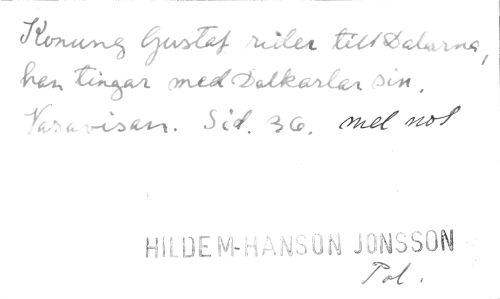 Konung Gustaf rider till Dalarna,
han tingar med Dalkarlar sin.
Vasavisan. Sid. 36. mel not
HILDE M-HANSON JONSSON
Pol.